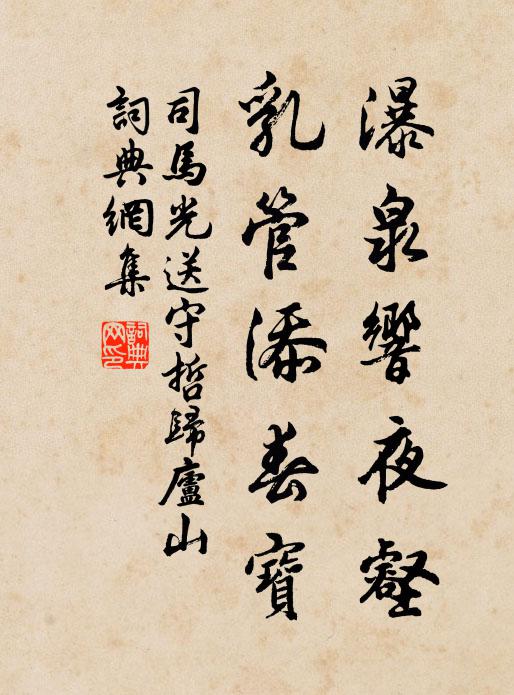 瀑泉響夜壑
乳管添春寶
司馬光送守哲歸廬山
詞典網集
詞典网印